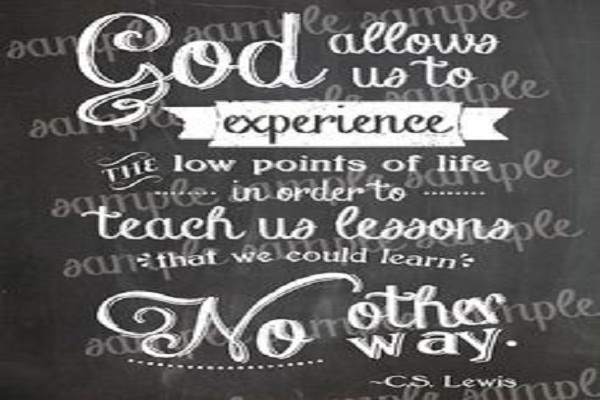 God allows
us to
experience
THE low points of life
in order to
teach us lessons
that we could learn
No other
way.
~C.S. Lewis
sample sample sample
sample sample sample
sample sample sample
sample sample sample
sample sample sample
sample sample sample
sample sample